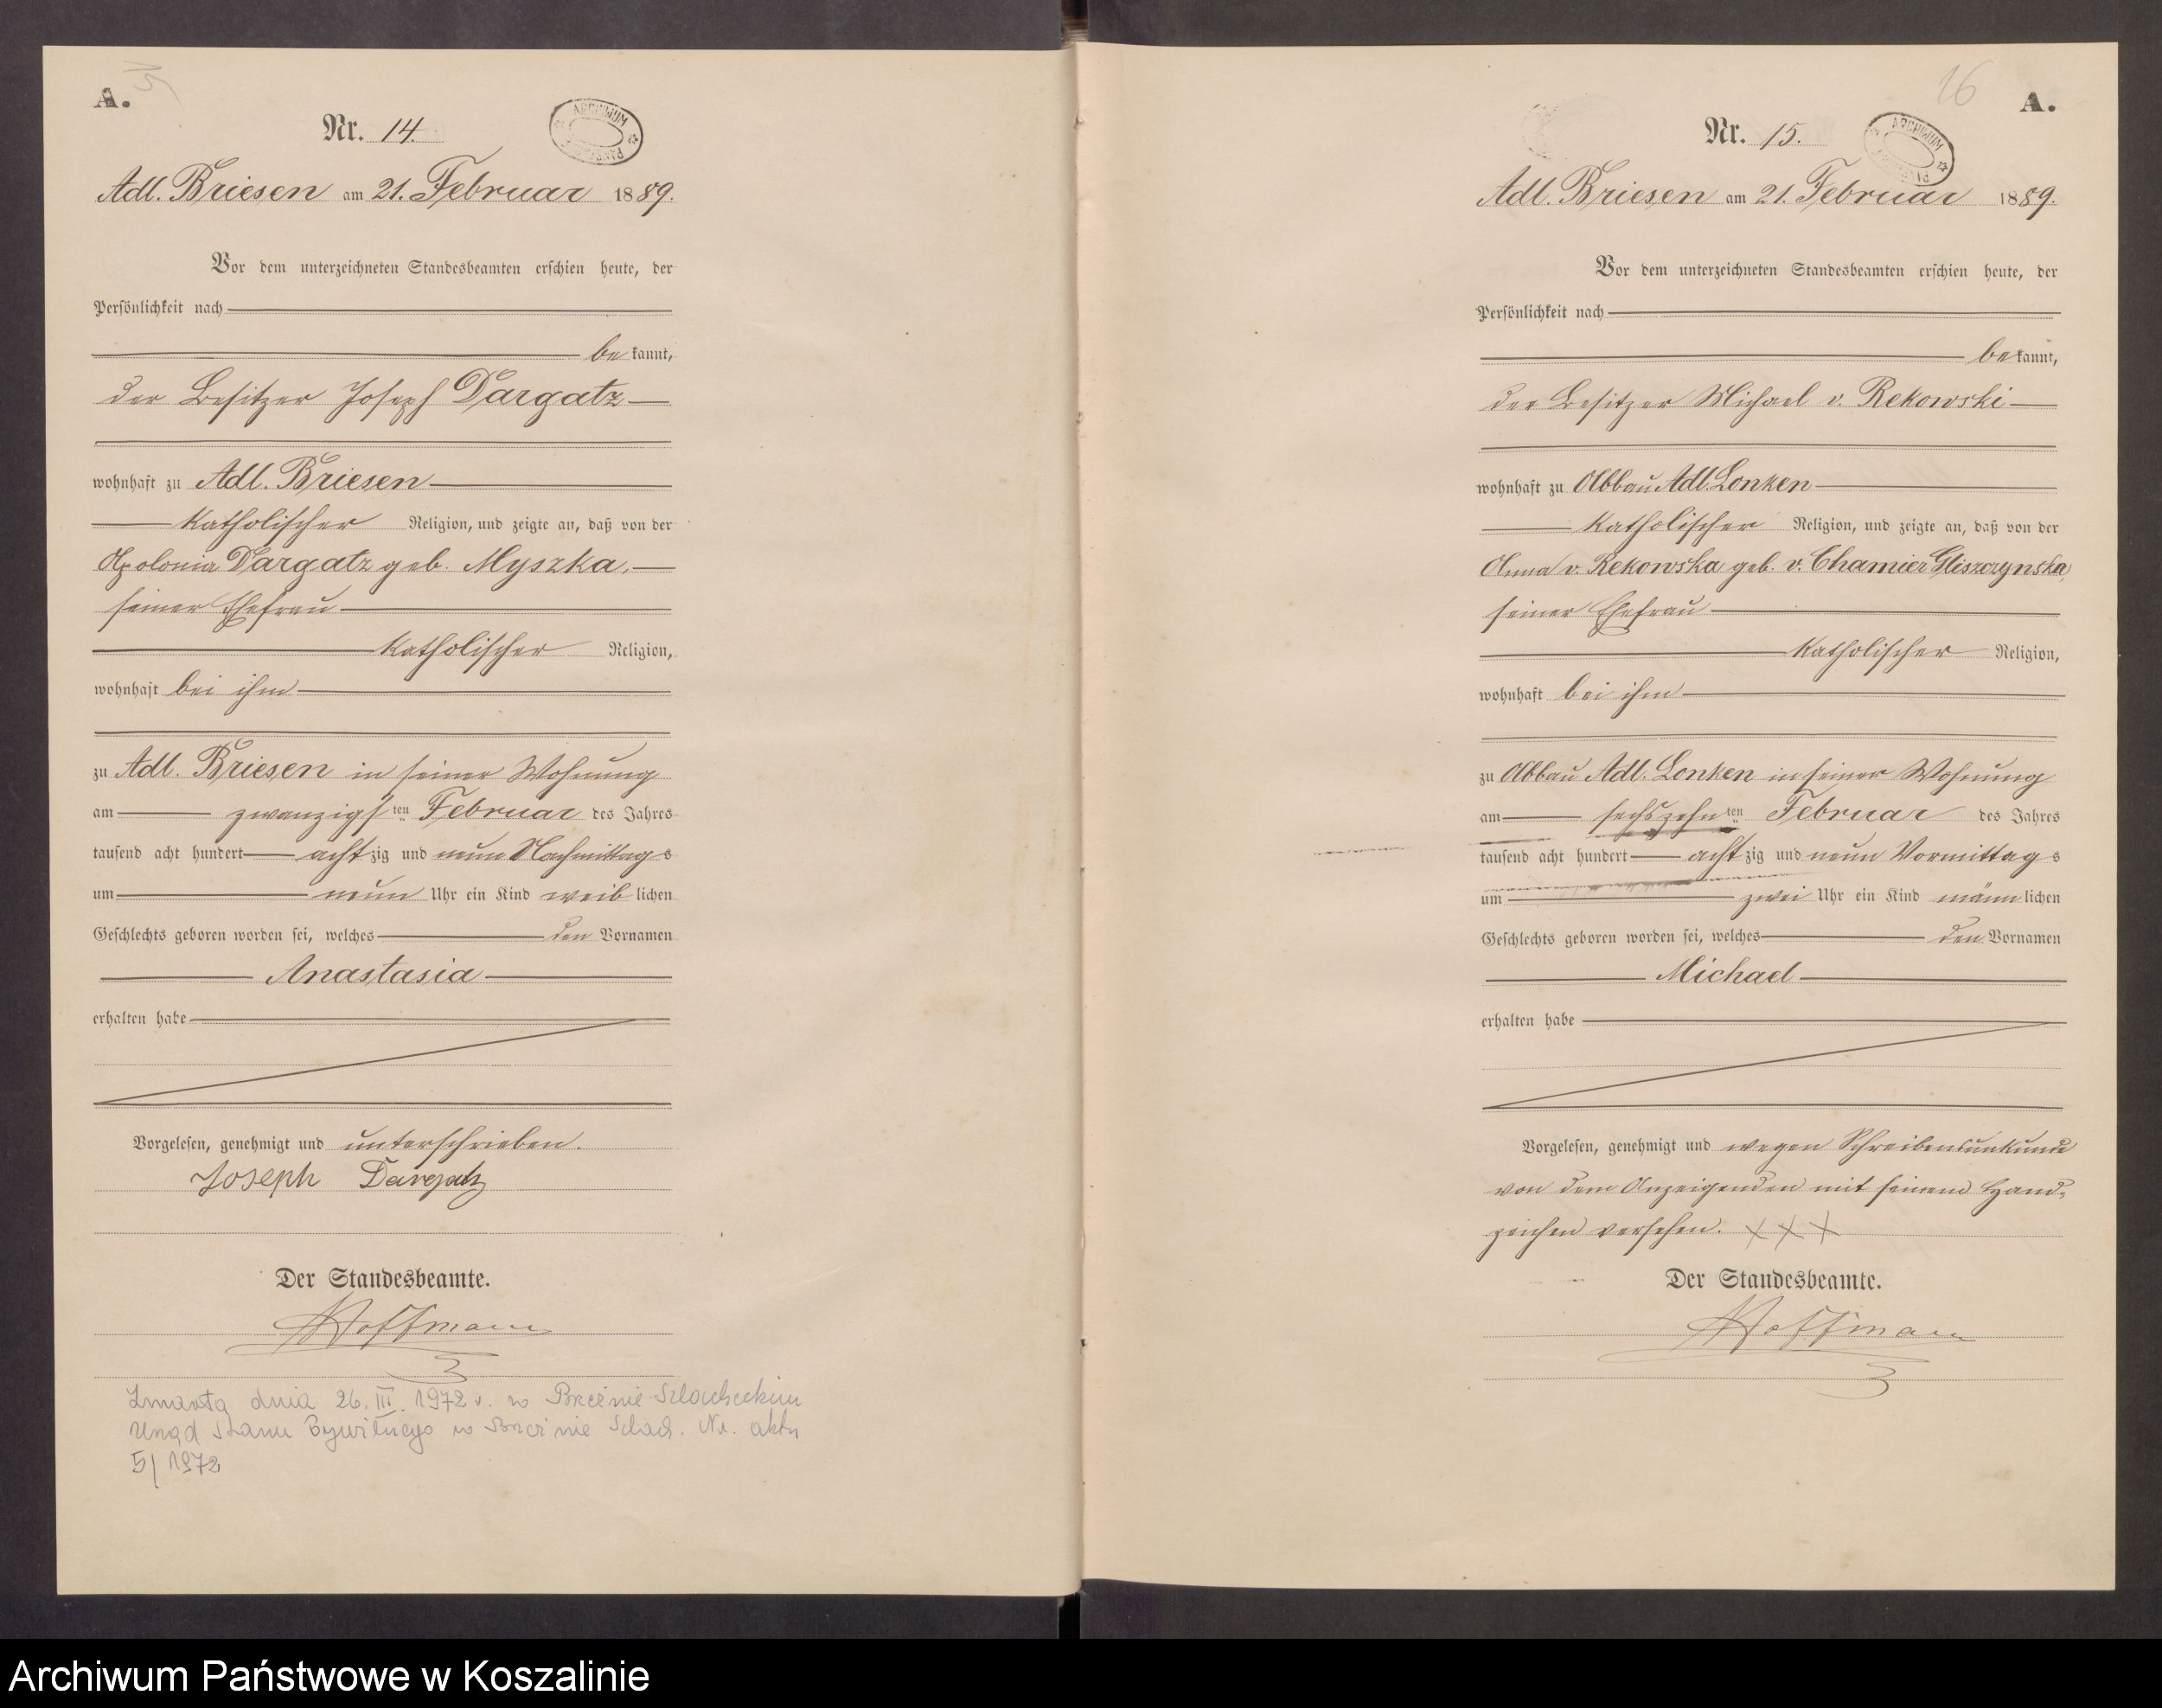 A.
15
Nr. 14.
ARCHIWUM
Adl. Briesen am 21. Februar 1889.
Vor dem unterzeichneten Standesbeamten erschien heute, der
Persönlichkeit nach
be kannt,
der Besitzer Joseph Dargatz
wohnhaft zu Adl. Briesen
katholischer Religion, und zeigte an, daß von der
Apolonia Dargatz geb. Myszka,
seiner Ehefrau
katholischer Religion,
wohnhaft bei ihm
zu Adl. Briesen in seiner Wohnung
am zwanzigsten Februar des Jahres
tausend acht hundert achtzig und neun Nachmittags
um neun Uhr ein Kind weiblichen
Geschlechts geboren worden sei, welches den Vornamen
Anastasia
erhalten habe
Vorgelesen, genehmigt und unterschrieben.
Joseph Dargatz
Der Standesbeamte.
Hoffmann
Zmarła dnia 26. III. 1972 r. w Brzeźnie Szlacheckim
Urząd Stanu Cywilnego w Brzeźnie Szlach. Nr. aktu
5/1972
16
A.
Nr. 15.
ARCHIWUM
Adl. Briesen am 21. Februar 1889.
Vor dem unterzeichneten Standesbeamten erschien heute, der
Persönlichkeit nach
be kannt,
der Besitzer Michael v. Rekowski
wohnhaft zu Abbau Adl. Lonken
katholischer Religion, und zeigte an, daß von der
Anna v. Rekowska geb. v. Chamier Gliszczynska,
seiner Ehefrau
katholischer Religion,
wohnhaft bei ihm
zu Abbau Adl. Lonken in seiner Wohnung
am sechszehnten Februar des Jahres
tausend acht hundert achtzig und neun Vormittags
um zwei Uhr ein Kind männlichen
Geschlechts geboren worden sei, welches den Vornamen
Michael
erhalten habe
Vorgelesen, genehmigt und wegen Schreibensunkunde
von dem Anzeigenden mit seinem Hand-
zeichen versehen. XXX
Der Standesbeamte.
Hoffmann
Archiwum Państwowe w Koszalinie